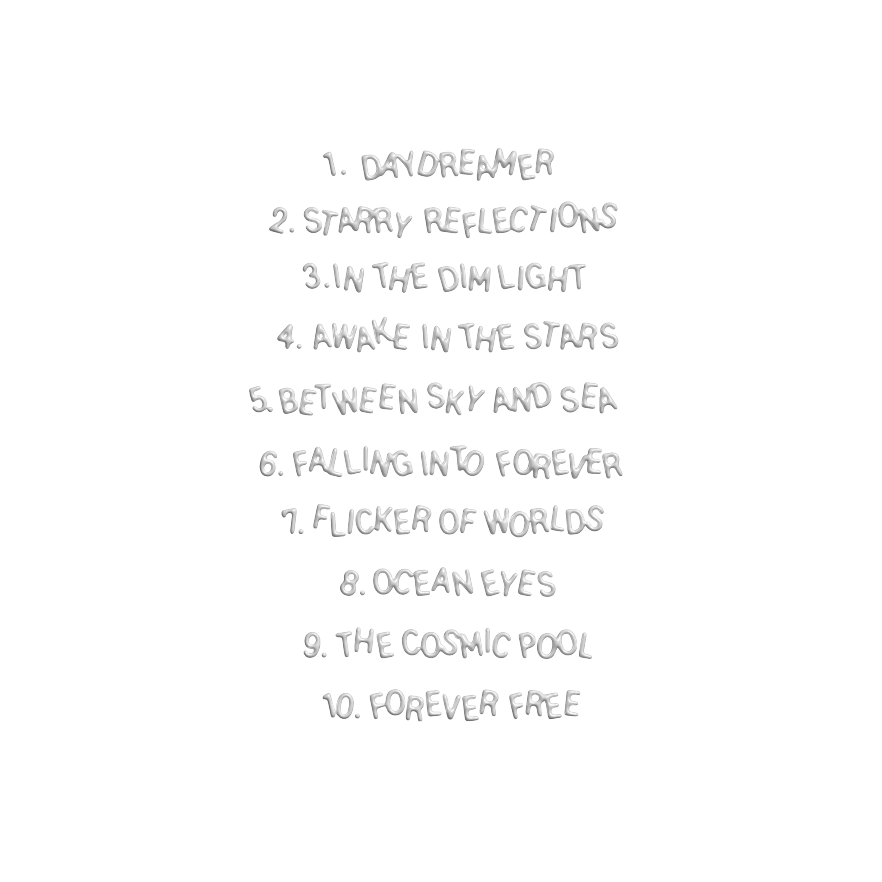 1. DAYDREAMER
2. STARRY REFLECTIONS
3. IN THE DIM LIGHT
4. AWAKE IN THE STARS
5. BETWEEN SKY AND SEA
6. FALLING INTO FOREVER
7. FLICKER OF WORLDS
8. OCEAN EYES
9. THE COSMIC POOL
10. FOREVER FREE